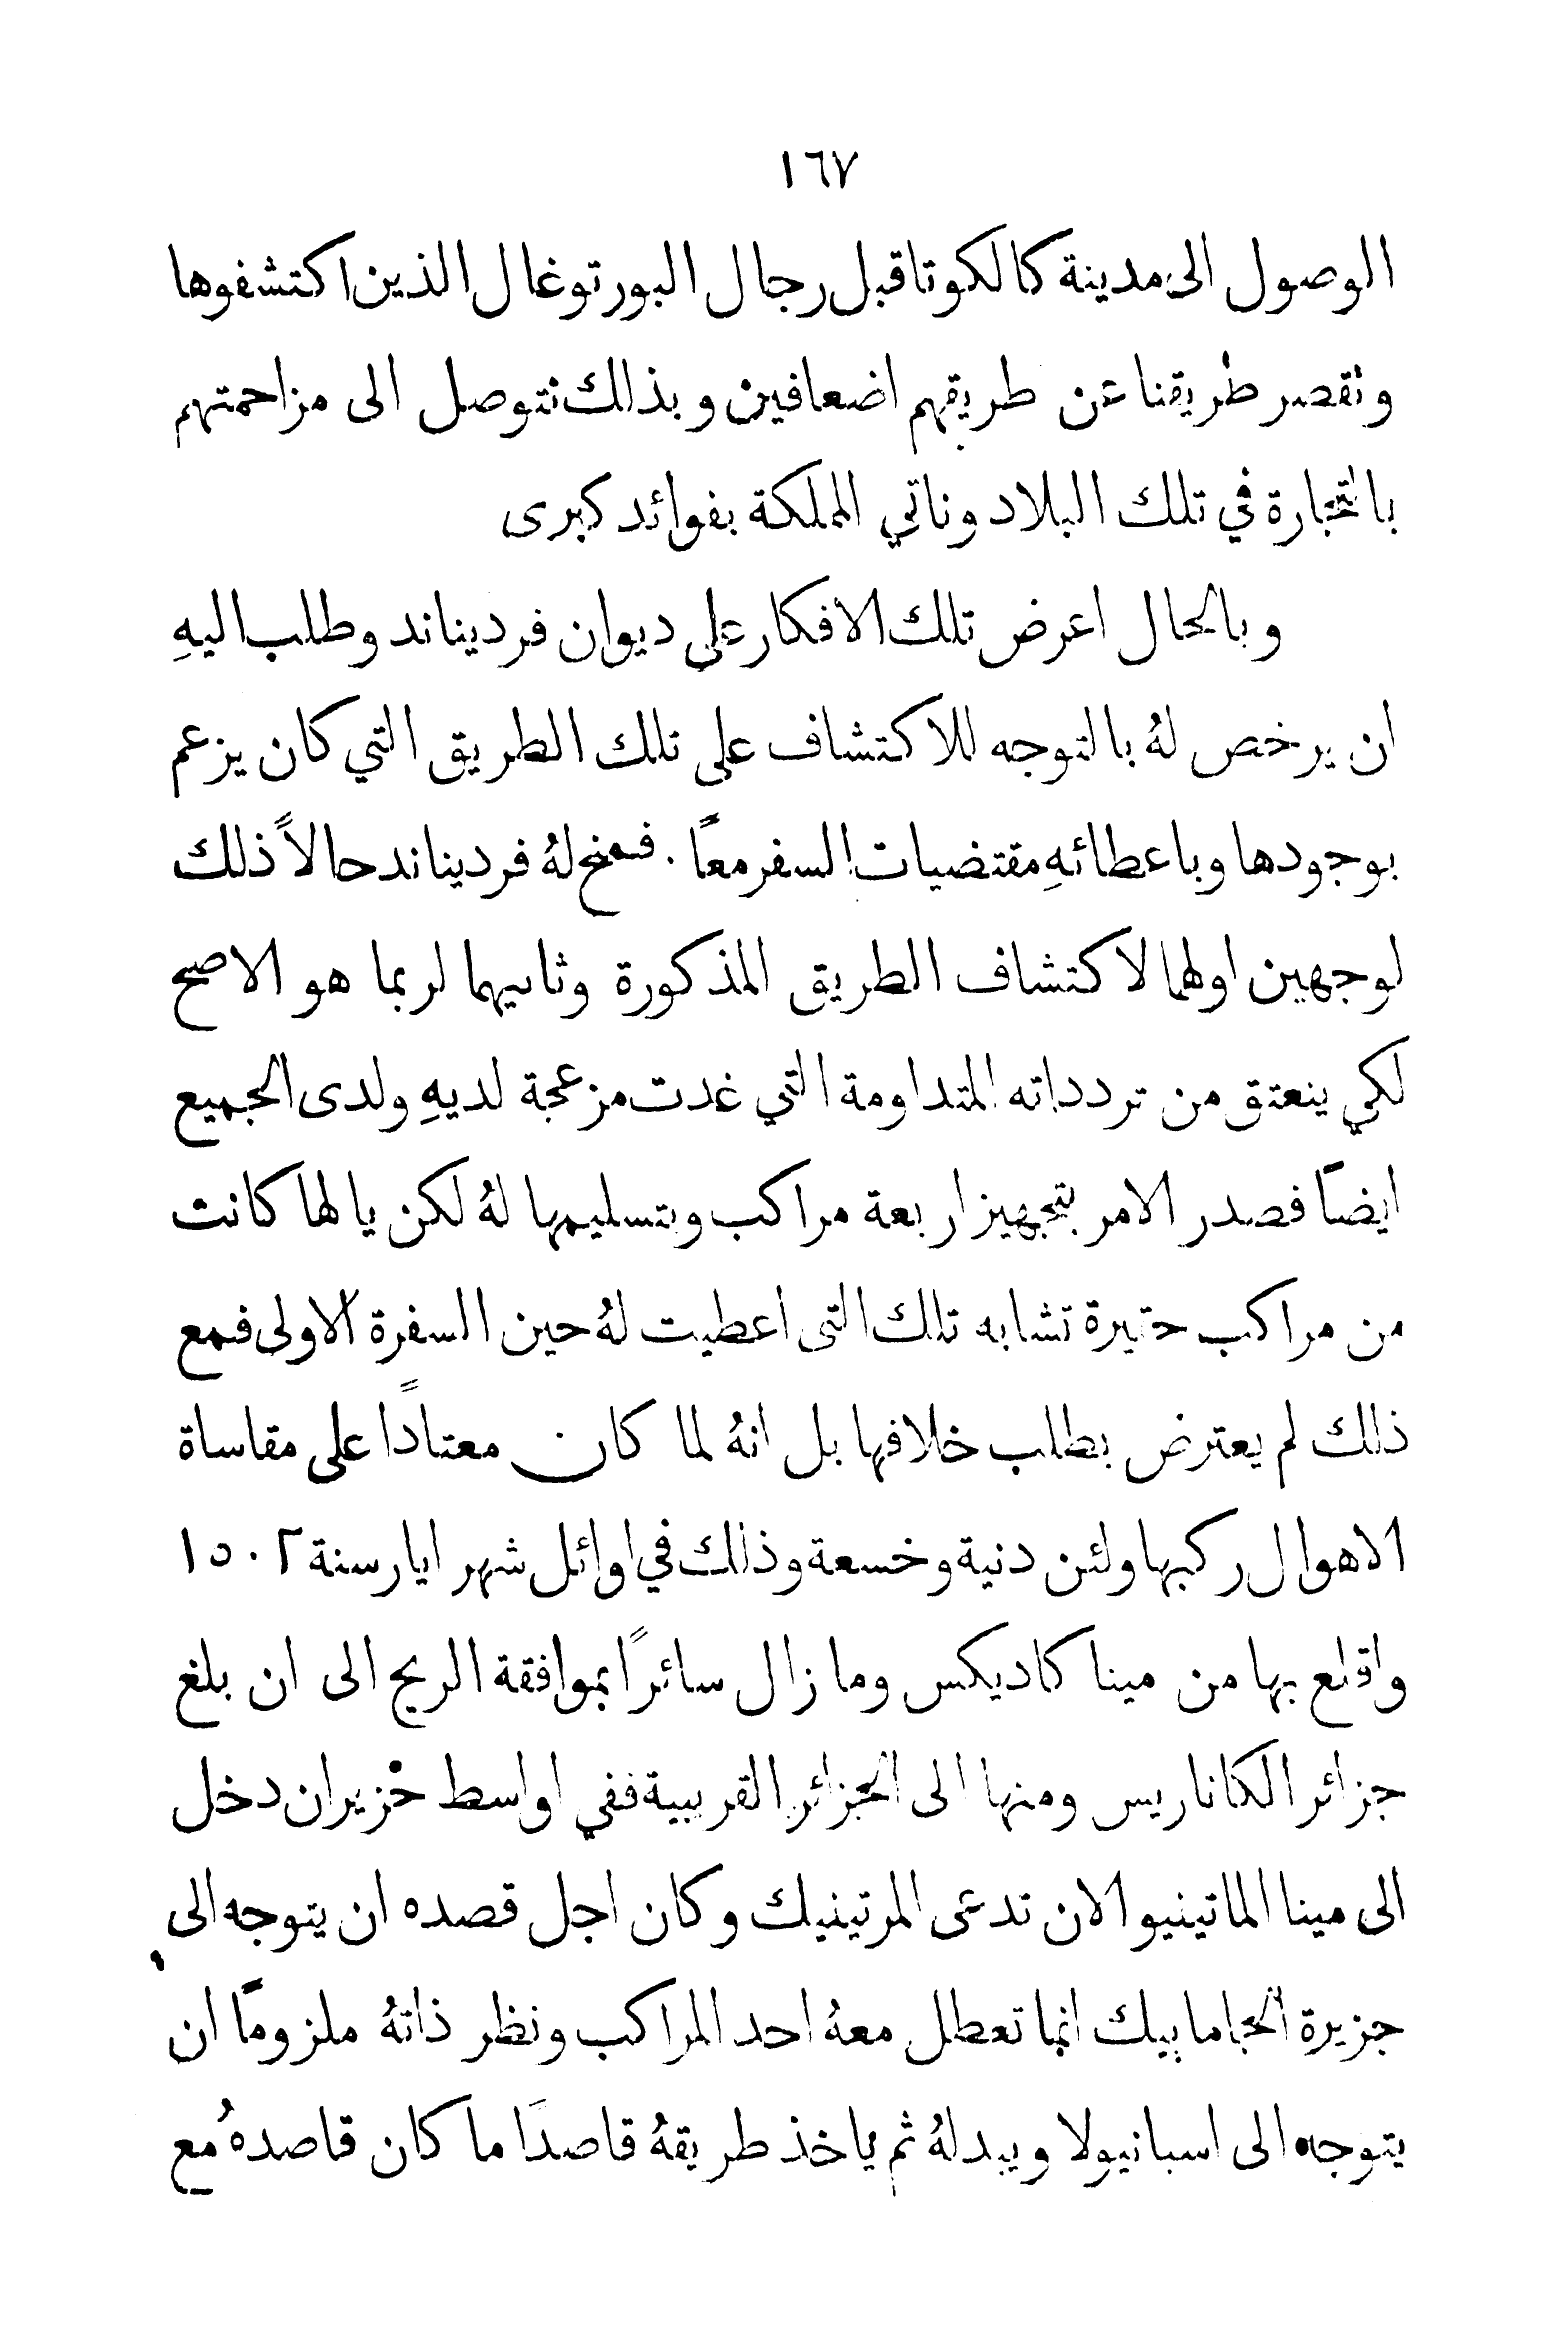 ١٦٧
الوصول الى مدينة كالكوتا قبل رجال البورتوغال الذين اكتشفوها
ونقصر طريقنا عن طريقهم اضعافين وبذلك نتوصل الى مزاحمتهم
بالتجارة في تلك البلاد وناتي المملكة بفوائد كبرى
وبالحال اعرض تلك الافكار على ديوان فرديناند وطلب اليهِ
ان يرخص لهُ بالتوجه للاكتشاف على تلك الطريق التي كان يزعم
بوجودها وباعطائهِ مقتضيات السفر معًا . فمنح لهُ فرديناند حالاً ذلك
لوجهين اولهما لاكتشاف الطريق المذكورة وثانيهما لربما هو الاصح
لكي ينعتق من تردداته المتداومة التي غدت مزعجة لديهِ ولدى الجميع
ايضًا فصدر الامر بتجهيز اربعة مراكب وبتسليمها لهُ لكن يالها كانت
من مراكب حقيرة تشابه تلك التى اعطيت لهُ حين السفرة الاولى فمع
ذلك لم يعترض بطلب خلافها بل انهُ لما كان معتادًا على مقاساة
الاهوال ركبها ولئن دنية وخسعة وذلك في اوائل شهر ايار سنة ١٥٠٢
واقلع بها من مينا كاديكس وما زال سائرًا بموافقة الريح الى ان بلغ
جزائر الكناريس ومنها الى الجزائر القريبية ففي اواسط حزيران دخل
الى مينا الماتينيو الان تدعى المرتينيك وكان اجل قصده ان يتوجه الى
جزيرة الجامابيك انما تعطل معهُ احد المراكب ونظر ذاتهُ ملزومًا ان
يتوجه الى اسبانيولا ويبدلهُ ثم ياخذ طريقهُ قاصدًا ما كان قاصدهُ مع